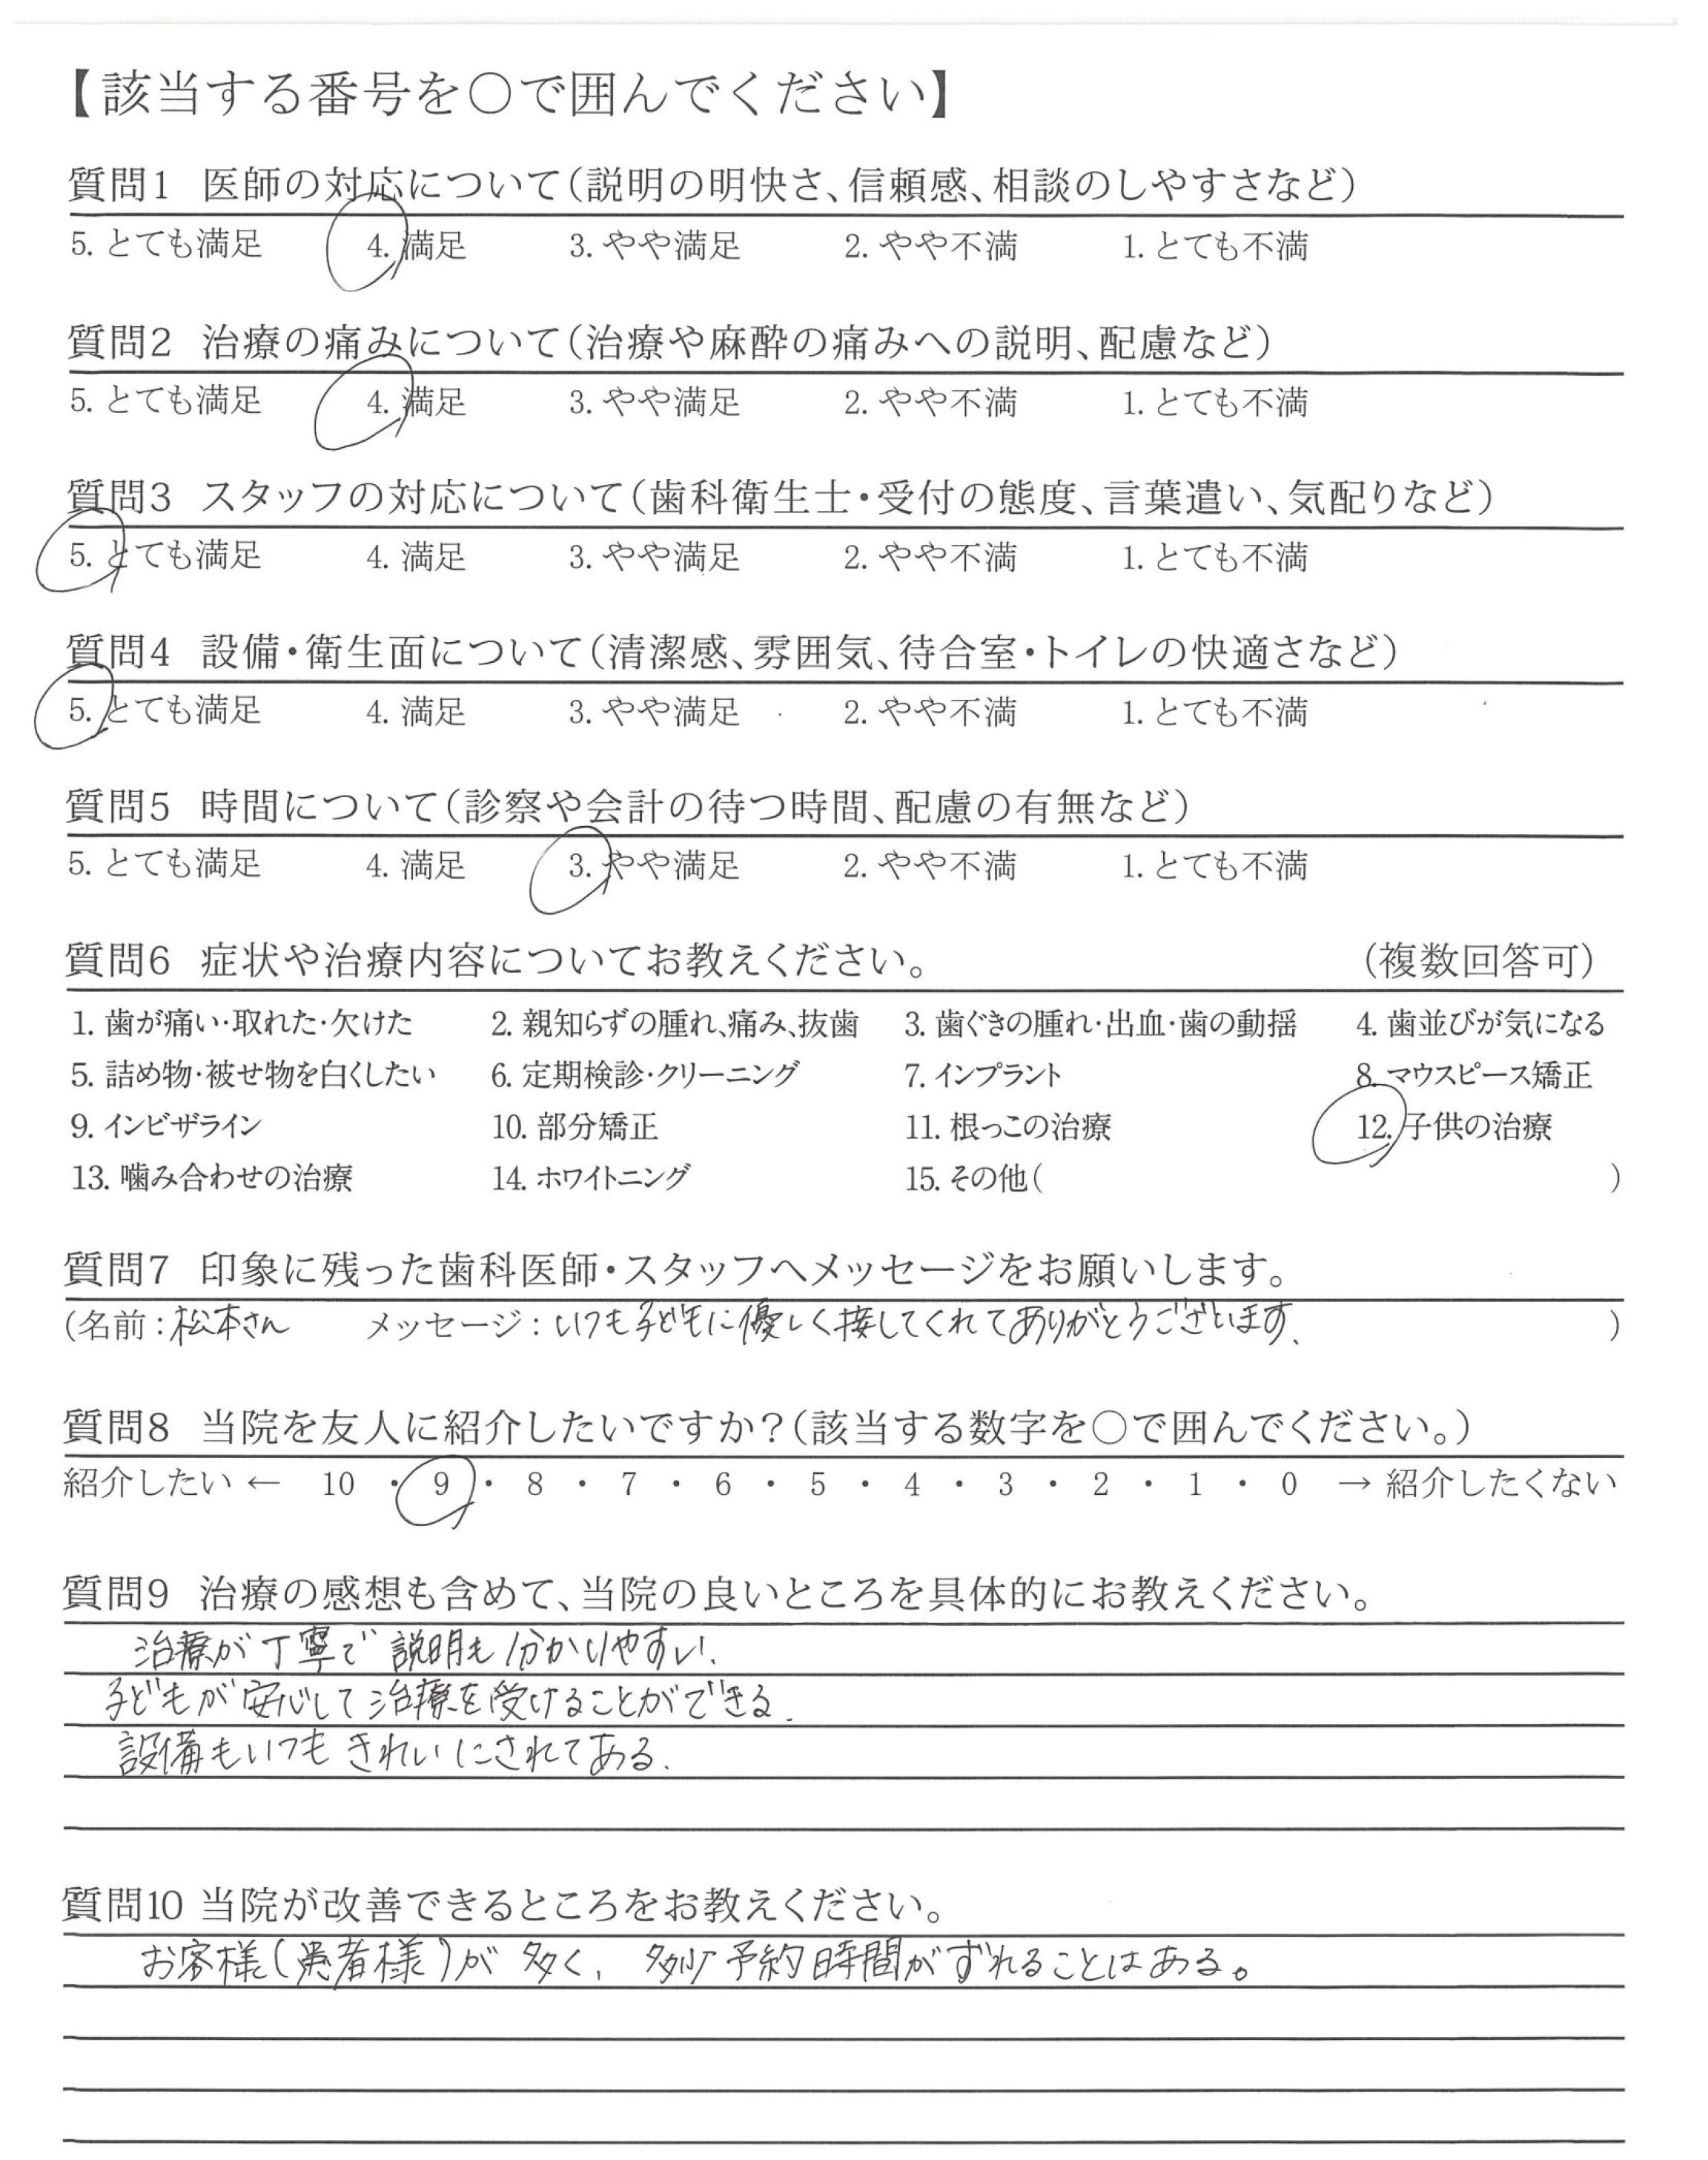 【該当する番号を○で囲んでください】
質問1 医師の対応について(説明の明快さ、信頼感、相談のしやすさなど)
5. とても満足 4. 満足 3. やや満足 2. やや不満 1. とても不満
質問2 治療の痛みについて(治療や麻酔の痛みへの説明、配慮など)
5. とても満足 4. 満足 3. やや満足 2. やや不満 1. とても不満
質問3 スタッフの対応について(歯科衛生士・受付の態度、言葉遣い、気配りなど)
5. とても満足 4. 満足 3. やや満足 2. やや不満 1. とても不満
質問4 設備・衛生面について(清潔感、雰囲気、待合室・トイレの快適さなど)
5. とても満足 4. 満足 3. やや満足 2. やや不満 1. とても不満
質問5 時間について(診察や会計の待つ時間、配慮の有無など)
5. とても満足 4. 満足 3. やや満足 2. やや不満 1. とても不満
質問6 症状や治療内容についてお教えください。 (複数回答可)
1. 歯が痛い・取れた・欠けた 2. 親知らずの腫れ、痛み、抜歯 3. 歯ぐきの腫れ・出血・歯の動揺 4. 歯並びが気になる
5. 詰め物・被せ物を白くしたい 6. 定期検診・クリーニング 7. インプラント 8. マウスピース矯正
9. インビザライン 10. 部分矯正 11. 根っこの治療 12. 子供の治療
13. 噛み合わせの治療 14. ホワイトニング 15. その他( )
質問7 印象に残った歯科医師・スタッフへメッセージをお願いします。
(名前:松本さん メッセージ:いつも子どもに優しく接してくれてありがとうございます、 )
質問8 当院を友人に紹介したいですか?(該当する数字を○で囲んでください。)
紹介したい ← 10 ・ 9 ・ 8 ・ 7 ・ 6 ・ 5 ・ 4 ・ 3 ・ 2 ・ 1 ・ 0 → 紹介したくない
質問9 治療の感想も含めて、当院の良いところを具体的にお教えください。
治療が丁寧で説明も分かりやすい.
子どもが安心して治療を受けることができる.
設備もいつもきれいにされてある.
質問10 当院が改善できるところをお教えください。
お客様(患者様)が多く、多少予約時間がずれることはある。